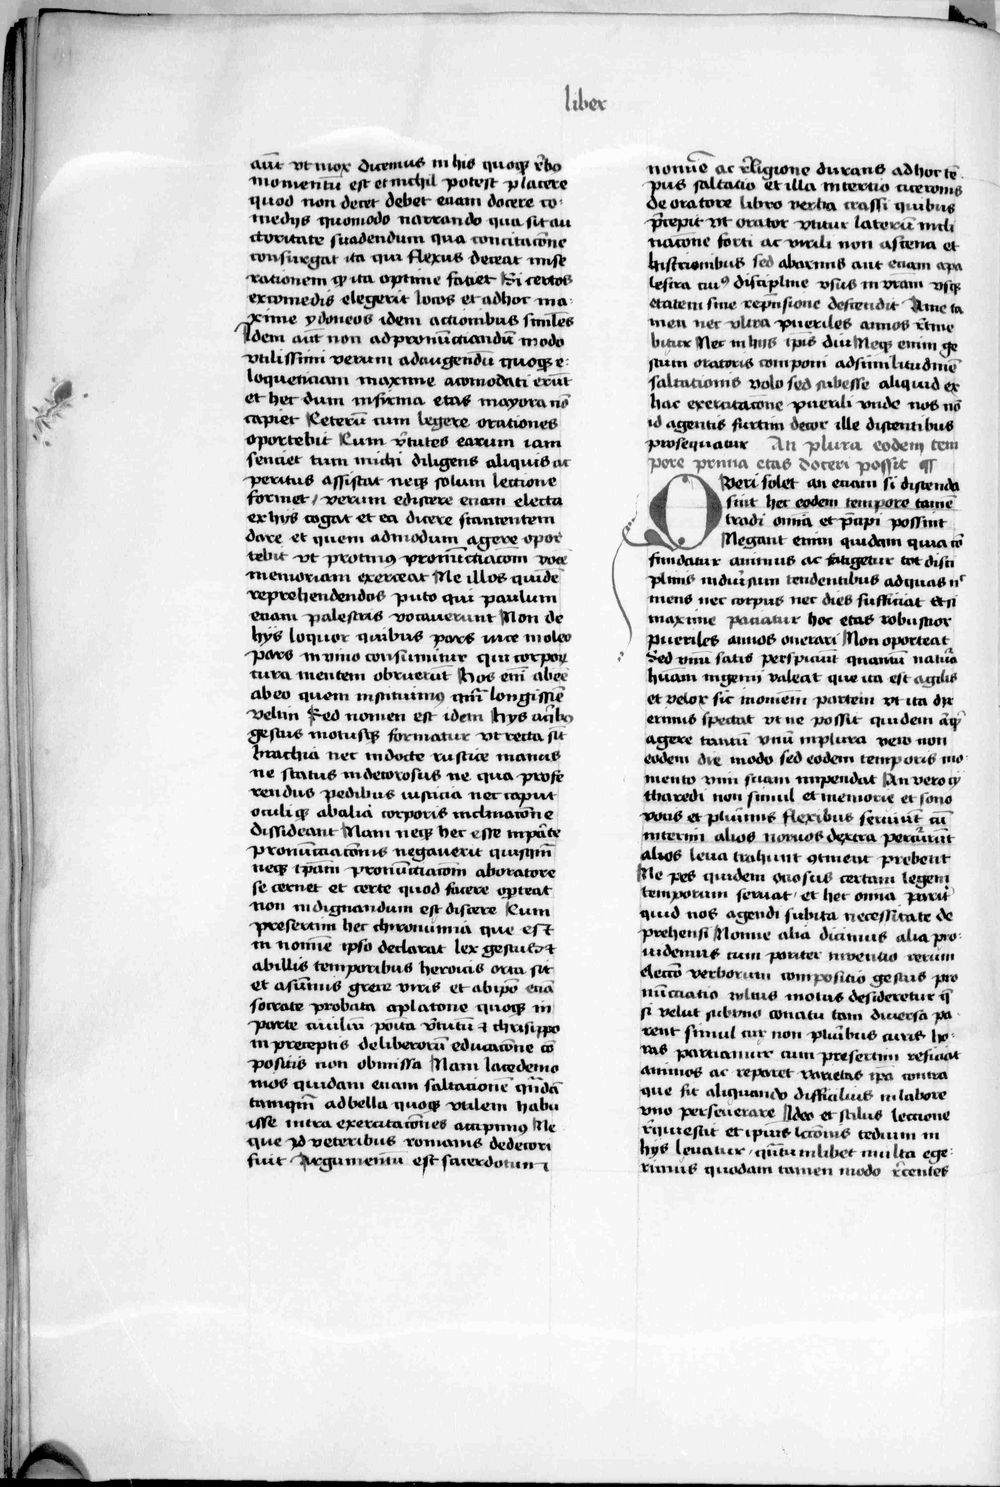 liber
aūt vt mox dicemus in his quoqꝫ r̄bꝯ
momentū est et nichil potest placere
quod non decet debet etiam docere co-
medijs quomodo narrando qua sit au
ctoritate suadendum qua concitacōne
consurgat ira qui flexus deceat mise
rationem qꝫ ita optime faciet Si certos
excomedis elegerit locos et adhoc ma-
xime ydoneos idem actionibus similes
Idem aūt non ad pronūctiandū modo
vtilissimi verum adaugendū quoqꝫ e-
loquenciam maxime acomodati erūt
et hec dum infirma etas mayora nō
capiet Ceterū cum legere orationes
oportebit Cum v̄tutes earum iam
senciet tum michi diligens aliquis ac
peritus assistat neqꝫ solum lectione
formet / verum ediscere etiam electa
ex hijs cogat et ea dicere stantentem
clare et quem admodum agere opor
tebit vt protinꝰ pronūctiacōm vocē
memoriam exerceat Ne illos quidē
reprehendendos puto qui paulum
etiam palestris vocaverunt Non de
hijs loquor quibus pars vite in oleo
pars in vino consumitur qui corporꝝ
cura mentem obruerūt Hos eni᷒ abeē
abeo quem instituimꝰ q̄m longissime
velim Sed nomen est idem hijs a᷒ribꝯ
gestus motusqꝫ formatur vt recta sit
brachia nec indocte rustice manus
ne status indecorosus ne qua profe
rendus pedibus insticia nec caput
oculiqꝫ abalia corporis inclinacōne
dissideant Nam neqꝫ hec esse inpa᷒te
pronūctiacōnis negaverit quisq̄m
neqꝫ ip̄am pronūctiacōm aboratore
se cernet et certe quod facere op̄teat
non indignandum est discere Cum
presertim hec chronumia que est
in nomīe ipso declarat lex gestus et
abillis temporibus heroicis orta sit
et asūmis grecie viris et abipō eciā
socrate probata aplatone quoqꝫ in
parte civiliū pōita v̄tutū et chrisippo
in preceptis deliberorū educacōne cō
positis non obmissa Nam lacedemo
nios quidam etiam saltationē q̄ndā
tamq̄m adbella quoqꝫ vtilem habu
isse intra exercitacōnes accipimꝰ Ne
que id veteribus romanis dedecori
fuit Argumentū est sacerdotum
nomīe ac r̄ligione durans adhoc tē
pus saltacio et illa intercio ciceronis
de oratore libro verba crassi quibus
p̄cepit vt orator vtatur laterū incli
nacōne forti ac virili non ascena et
histrionibus sed abarmis aut etiam apa
lestra cuiꝰ discipline vsus in vr̄am vsqꝫ
etatem sine rep̄nsione descendit A me ta
men nec vltra pueriles annos r̄tine
bitur Nec in hijs ip̄is diu Neqꝫ enim ge
stum oratoris componi adsimilitudinē
saltationis volo sed subesse aliquid ex
hac exercitacōne puerili vnde nos nō
id agentis furtim decor ille discentibus
prosequatur An plura eodem tem
pore prima etas doceri possit ¶
Queri solet an etiam si discenda
sint hec eodem tempore tamē
tradi omnia et p̄cipi possint
Negant enim quidam quia cō
fundatur animus ac fatigetur tot disci
plinis indiu᷒sum tendentibus adquas nᶜ
mens nec corpus nec dies sufficiat et si
maxime paciatur hoc etas robustior
pueriles annos onerari Non oporteat
Sed vnū satis perspiciūt quantū natu᷒a
hūani ingenij valeat que ita est agilis
et velox sic in omēm partem vt ita dix
erimus spectat vt ne possit quidem a᷒liqꝫ
agere tantū vnū inplura vero non
eodem die modo sed eodem temporis mo-
mento vim suam impendat An vero cy
tharedi non simul et memorie et sono
vocis et plurimis flexibus serviūt cū
interim alios nervos dextra percu᷒rūt
alios leua trahunt 9tinent prebent
Ne pes quidem ociosus certam legem
temporum servat / et hec omnia parit᷒
quid nos agendi subita necessitate de
prehensi Nonne alia dicimus alia pro-
videmus cum pariter inventio rerum
electō verborum compositio gestus pro
nūctiatio vultus motus desideretur q̄
si velut subvno conatu tam diversa pa-
rent simul cur non pluribus curis ho-
ras partiamur cum presertim reficiat
animos ac reparet varietas ip̄a contra
que sit aliquando difficilius in labore
vno perseverare Ideo et stilus lectione
r̄quiescit et ipsius lectōnis tedium in
hijs levatur / q̄ntumlibet multa ege-
rimus quodam tamen modo r̄centes